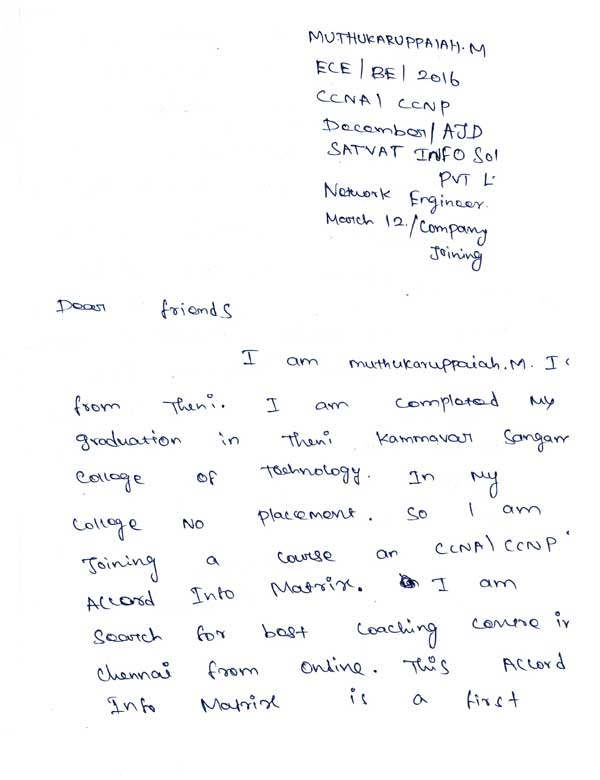 MUTHUKARUPPAIAH.M
ECE/BE/2016
CCNA/CCNP
December/AJD
SATVAT INFO Sol
PVT L
Network Engineer.
March 12./Company
Joining
Dear friends
I am muthukaruppaiah.M. I
from Theni. I am completed my
graduation in Theni Kammavar Sangam
College of Technology. In my
College No placement. So I am
Joining a course an CCNA/CCNP
Accord Into Matrix. I am
Search for best coaching centre in
chennai from online. This Accord
Info Matrix is a first